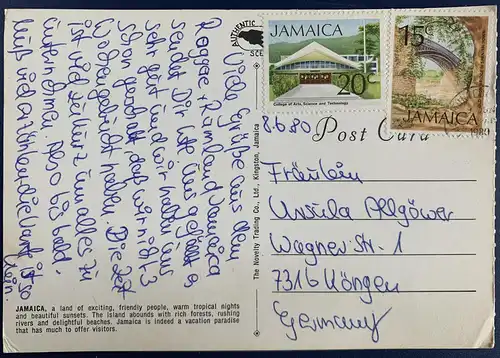 Viele Grüße aus dem
Reggae + Rumland Jamaica
sendet Dir Ute. Uns gefällt es
sehr gut und wir haben uns
schon geärgert, daß wir nicht 3
Wochen gebucht haben. Die Zeit
ist viel zu kurz um alles zu
unternehmen. Also bis bald.
Muß viel erzählen die Karte ist so
klein.
JAMAICA, a land of exciting, friendly people, warm tropical nights
and beautiful sunsets. The island abounds with rich forests, rushing
rivers and delightful beaches. Jamaica is indeed a vacation paradise
that has much to offer visitors.
The Novelty Trading Co., Ltd., Kingston, Jamaica
AUTHENTIC
SCE
JAMAICA
20c
College of Arts, Science and Technology
15c
JAMAICA
1980
8.6.80
Post Card
Fräulein
Ursula Allgöwer
Wagner Str. 1
7316 Köngen
Germany